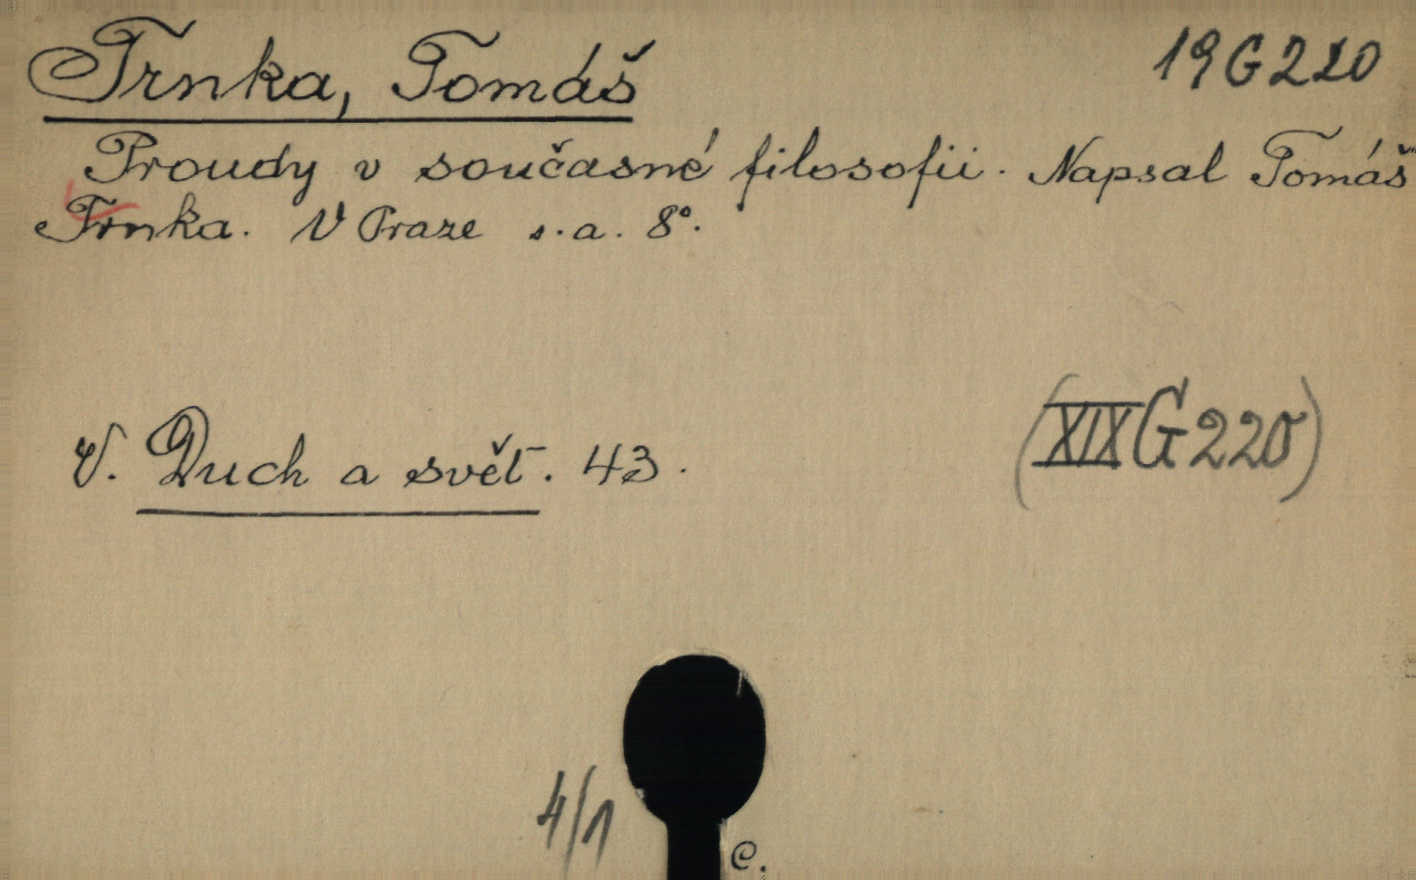 Trnka, Tomáš 19 G 220
Proudy v současné filosofii. Napsal Tomáš
Trnka. V Praze s. a. 8°.
V. Duch a svět. 43.
(XIX G 220)
4/1
C.